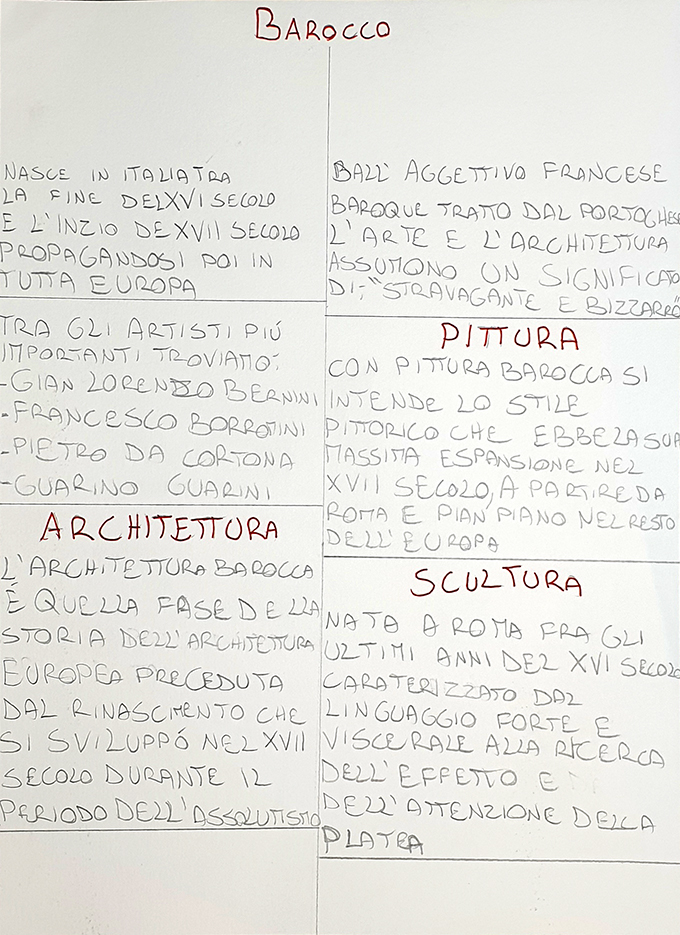 BAROCCO
NASCE IN ITALIA TRA
LA FINE DEL XVI SECOLO
E L'INZIO DE XVII SECOLO
PROPAGANDOSI POI IN
TUTTA EUROPA
TRA GLI ARTISTI PIÚ
IMPORTANTI TROVIAMO:
-GIAN LORENZO BERNINI
-FRANCESCO BORROMINI
-PIETRO DA CORTONA
-GUARINO GUARINI
ARCHITETTURA
L'ARCHITETTURA BAROCCA
É QUELLA FASE DELLA
STORIA DELL'ARCHITETTURA
EUROPEA PRECEDUTA
DAL RINASCMENTO CHE
SI SVILUPPÓ NEL XVII
SECOLO DURANTE IL
PERIODO DELL'ASSOLUTISMO
DALL' AGGETTIVO FRANCESE
BAROQUE TRATTO DAL PORTOGHESE
L'ARTE E L'ARCHITETTURA
ASSUMONO UN SIGNIFICATO
DI:"STRAVAGANTE E BIZZARRO"
PITTURA
CON PITTURA BAROCCA SI
INTENDE LO STILE
PITTORICO CHE EBBE LA SUA
MASSIMA ESPANSIONE NEL
XVII SECOLO, A PARTIRE DA
ROMA E PIAN'PIANO NEL RESTO
DELL'EUROPA
SCULTURA
NATA A ROMA FRA GLI
ULTIMI ANNI DEL XVI SECOLO
CARATERIZZATO DAL
LINGUAGGIO FORTE E
VISCERALE ALLA RICERCA
DELL'EFFETTO E
DELL'ATTENZIONE DELLA
PLATEA